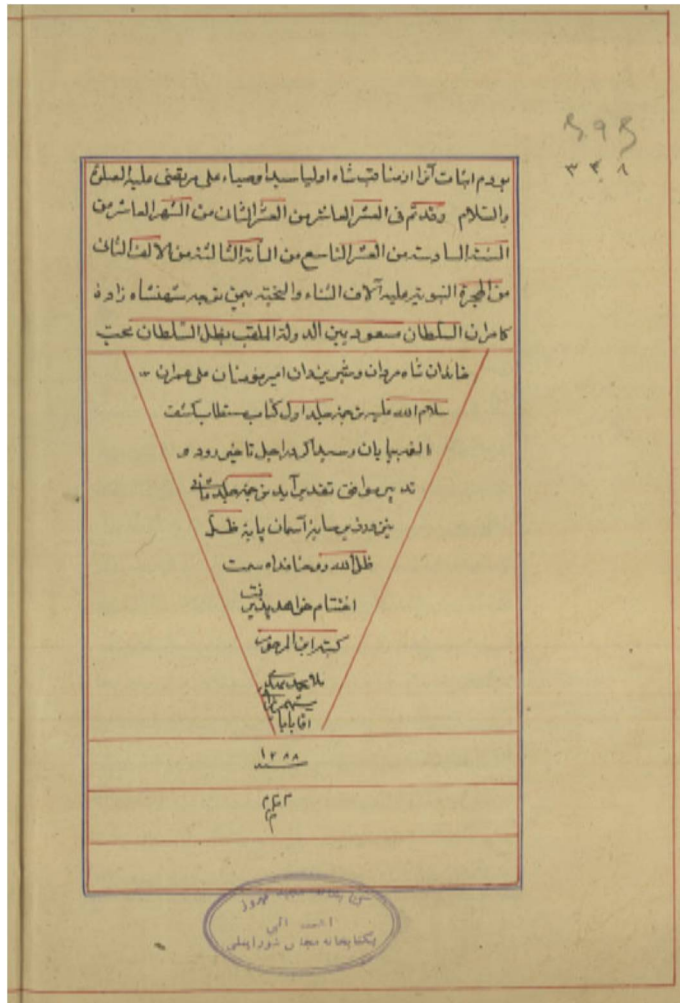 ۵۹۵
۳۳۸
بودم اثبات آنرا از مناقب شاه اولیا سید اوصیاء علی مرتضی علیه الصلوة
والسلام وقد تم فی العشر العاشر من العشر الثانی من الشهر العاشر من
السنة السادسة من العشر التاسع من المأة الثالثة من الالف الثانی
من الهجرة النبویة علیه آلاف الثناء والتحیة بیمن توجه شهنشاه زاده
کامران السلطان مسعود یمین الدولة الملقب بظل السلطان محب
خاندان شاه مردان و شیر یزدان امیر مؤمنان علی عمران
سلام الله علیه جلد اول کتاب مستطاب کشف
الغمه بپایان رسید اگر در اجل تاخیر رود و
تدبیر موافق تقدیر آید جلد ثانی
نیز در سایهٔ آسمان پایهٔ ظل
ظل الله روحنا فداه سمت
اختتام خواهد پذیرفت
کتبه ابن المرحوم
ملا محمد
آقا بابا
سنه ۱۲۸۸
کتابخانه
اهدائی
بکتابخانه مجلس شورایملی